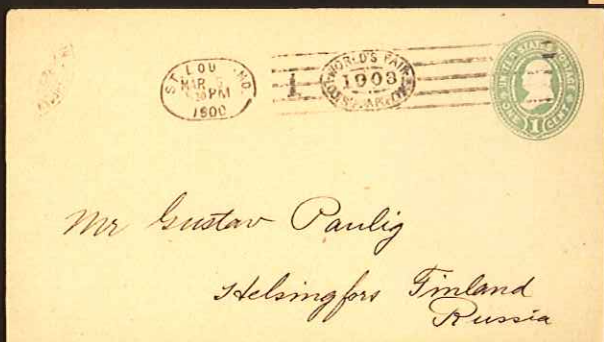 ST. LOUIS, MO.
MAR
PM
1900
1
WORLD'S FAIR
1903
ST. LOUIS
UNITED STATES POSTAGE
ONE 1 CENT
Mr Gustav Paulig
Helsingfors Finland
Russia